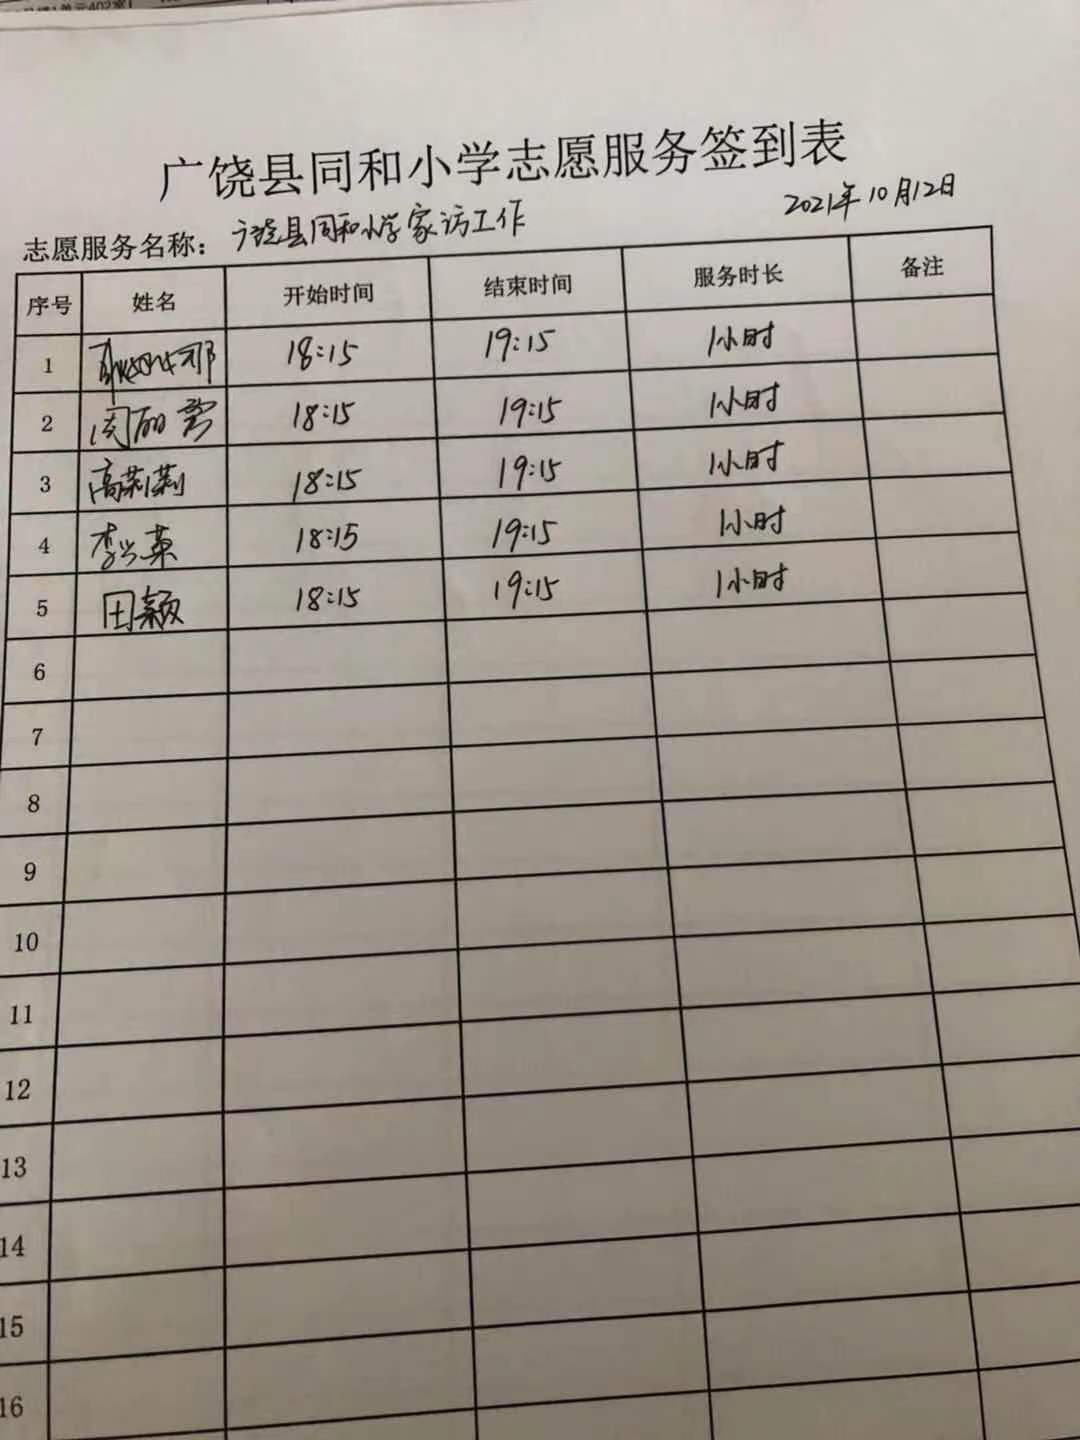 单元402室
广饶县同和小学志愿服务签到表
2021年10月12日
志愿服务名称：广饶县同和小学家访工作
序号 姓名 开始时间 结束时间 服务时长 备注
1 18:15 19:15 1小时
2 周丽 18:15 19:15 1小时
3 高莉莉 18:15 19:15 1小时
4 李兴英 18:15 19:15 1小时
5 田颖 18:15 19:15 1小时
6
7
8
9
10
11
12
13
14
15
16